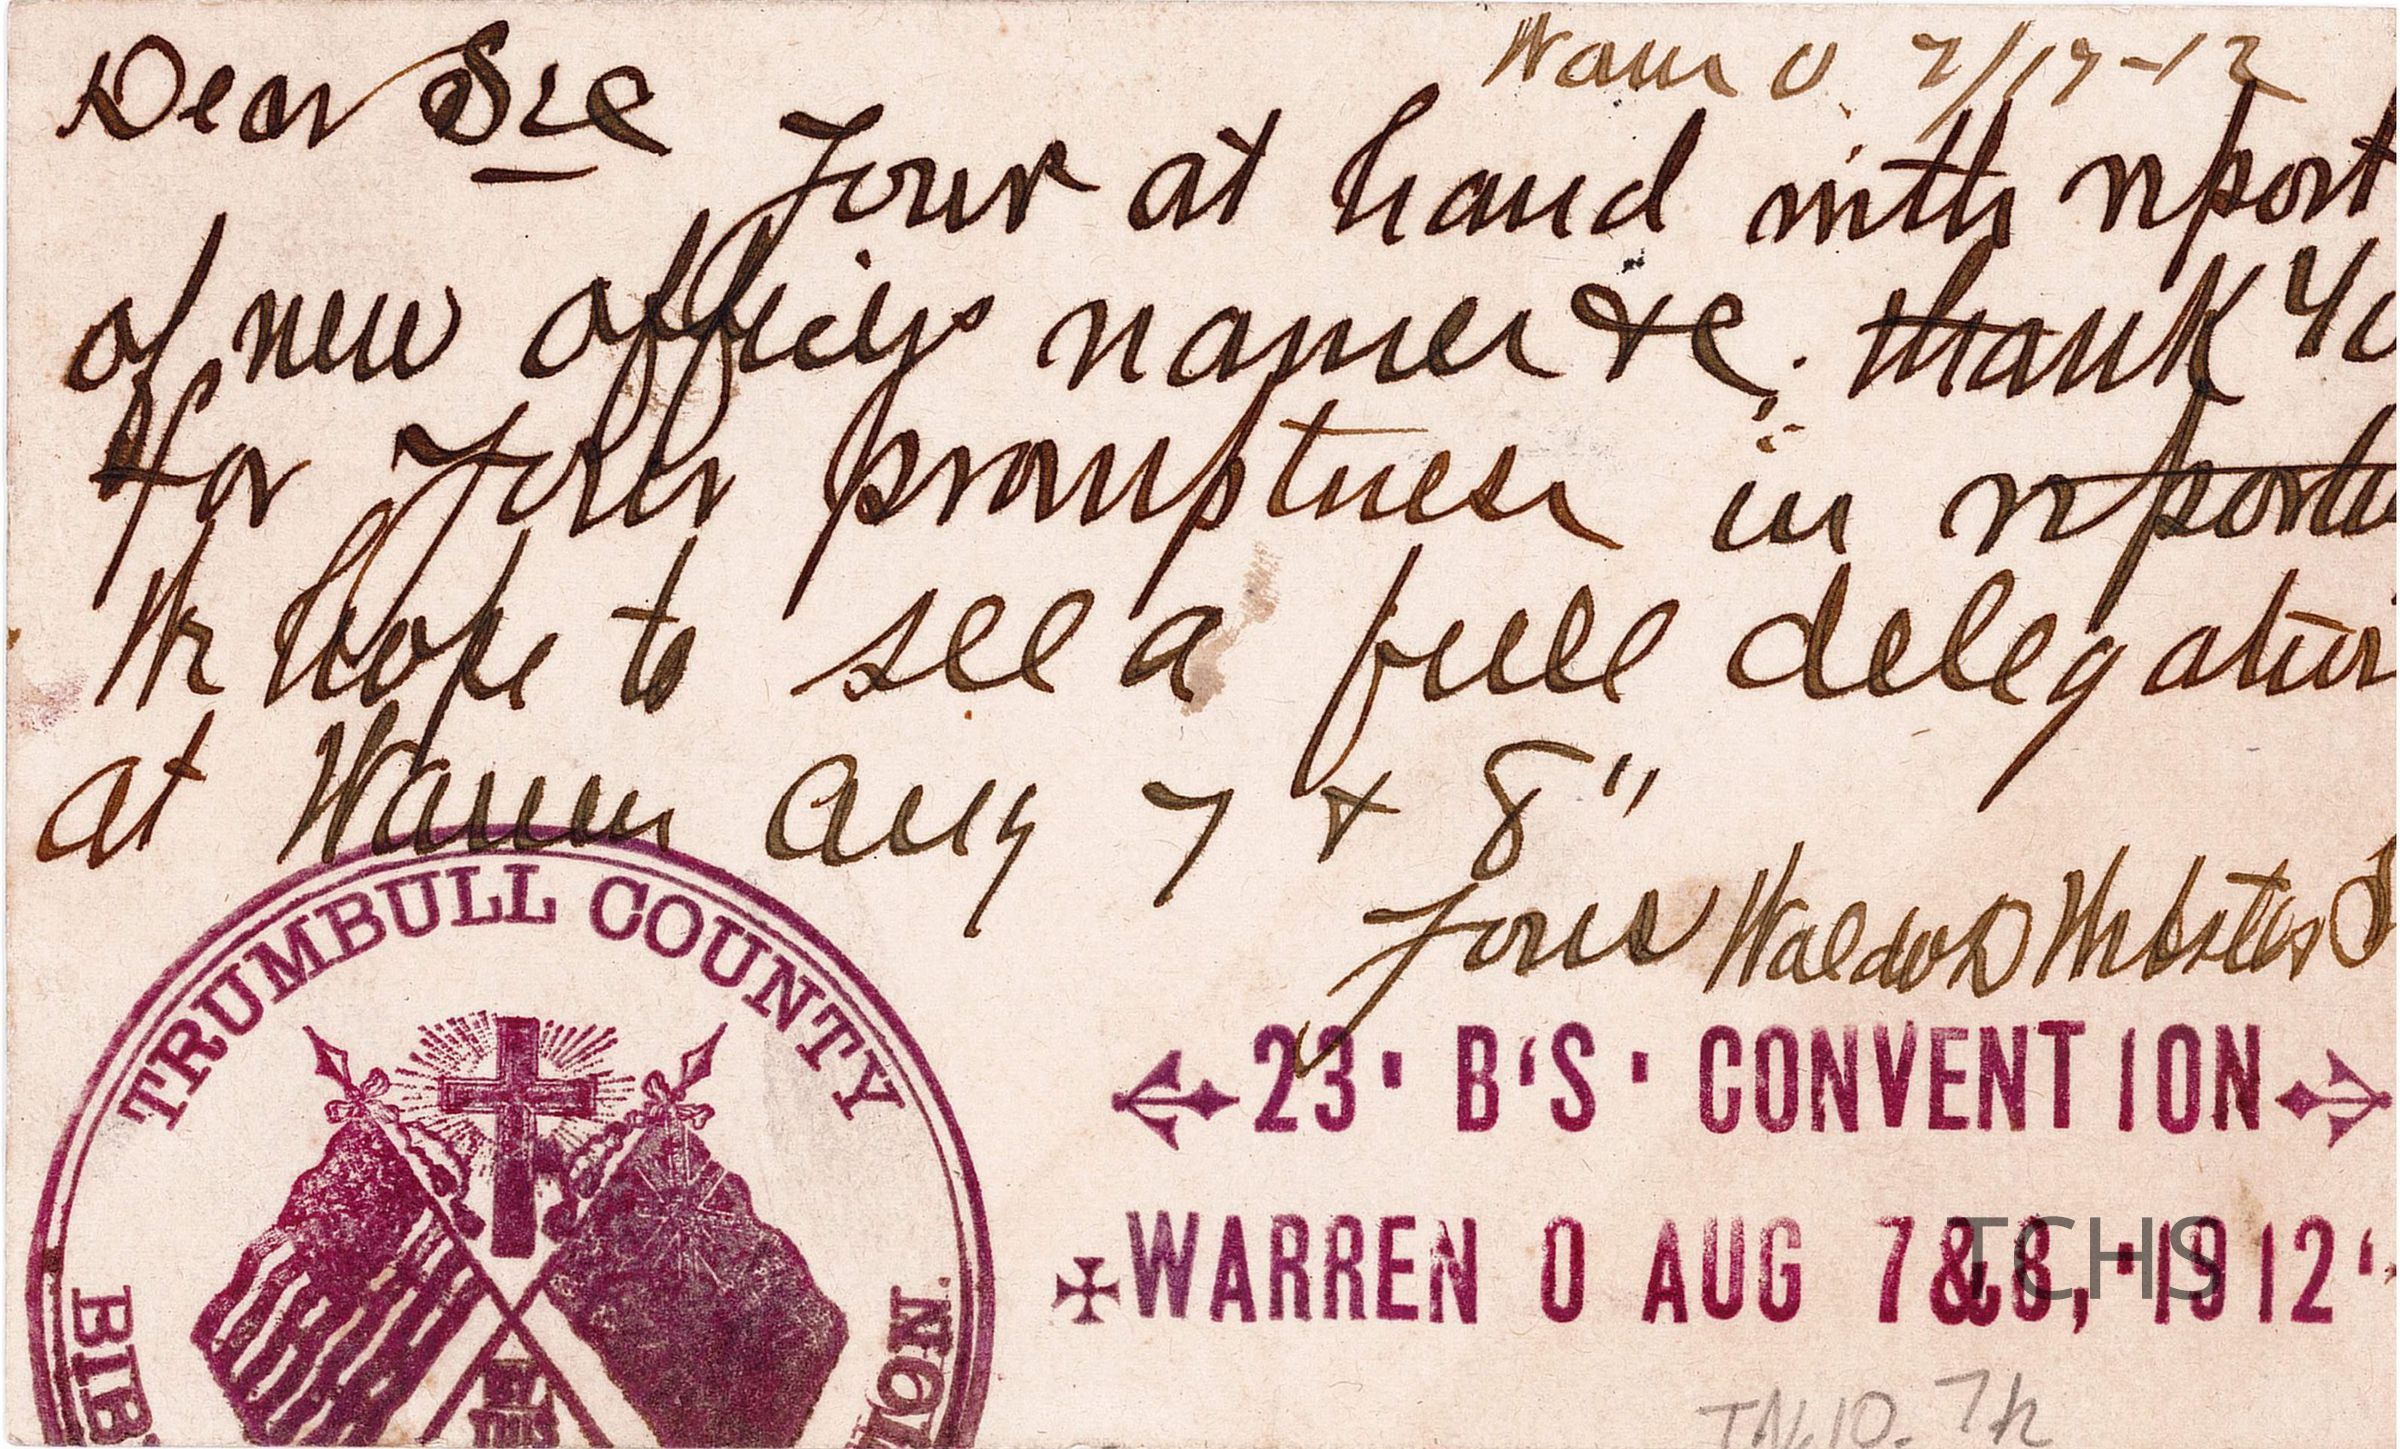 Warren O. 7/19-12
Dear Sec
Your at hand with report
of new officers names &c. thank Yo
for your promptness in report
We hope to see a full delegation
at Warren Aug 7 & 8"
Yours Waldo D Webster S
TRUMBULL COUNTY
23' B'S' CONVENTION
WARREN O AUG 7&8, '1912'
TCHS
BIB
ION
BY
THIS